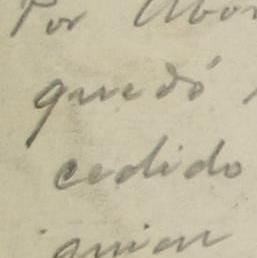 Por
quedó
cedido
quien